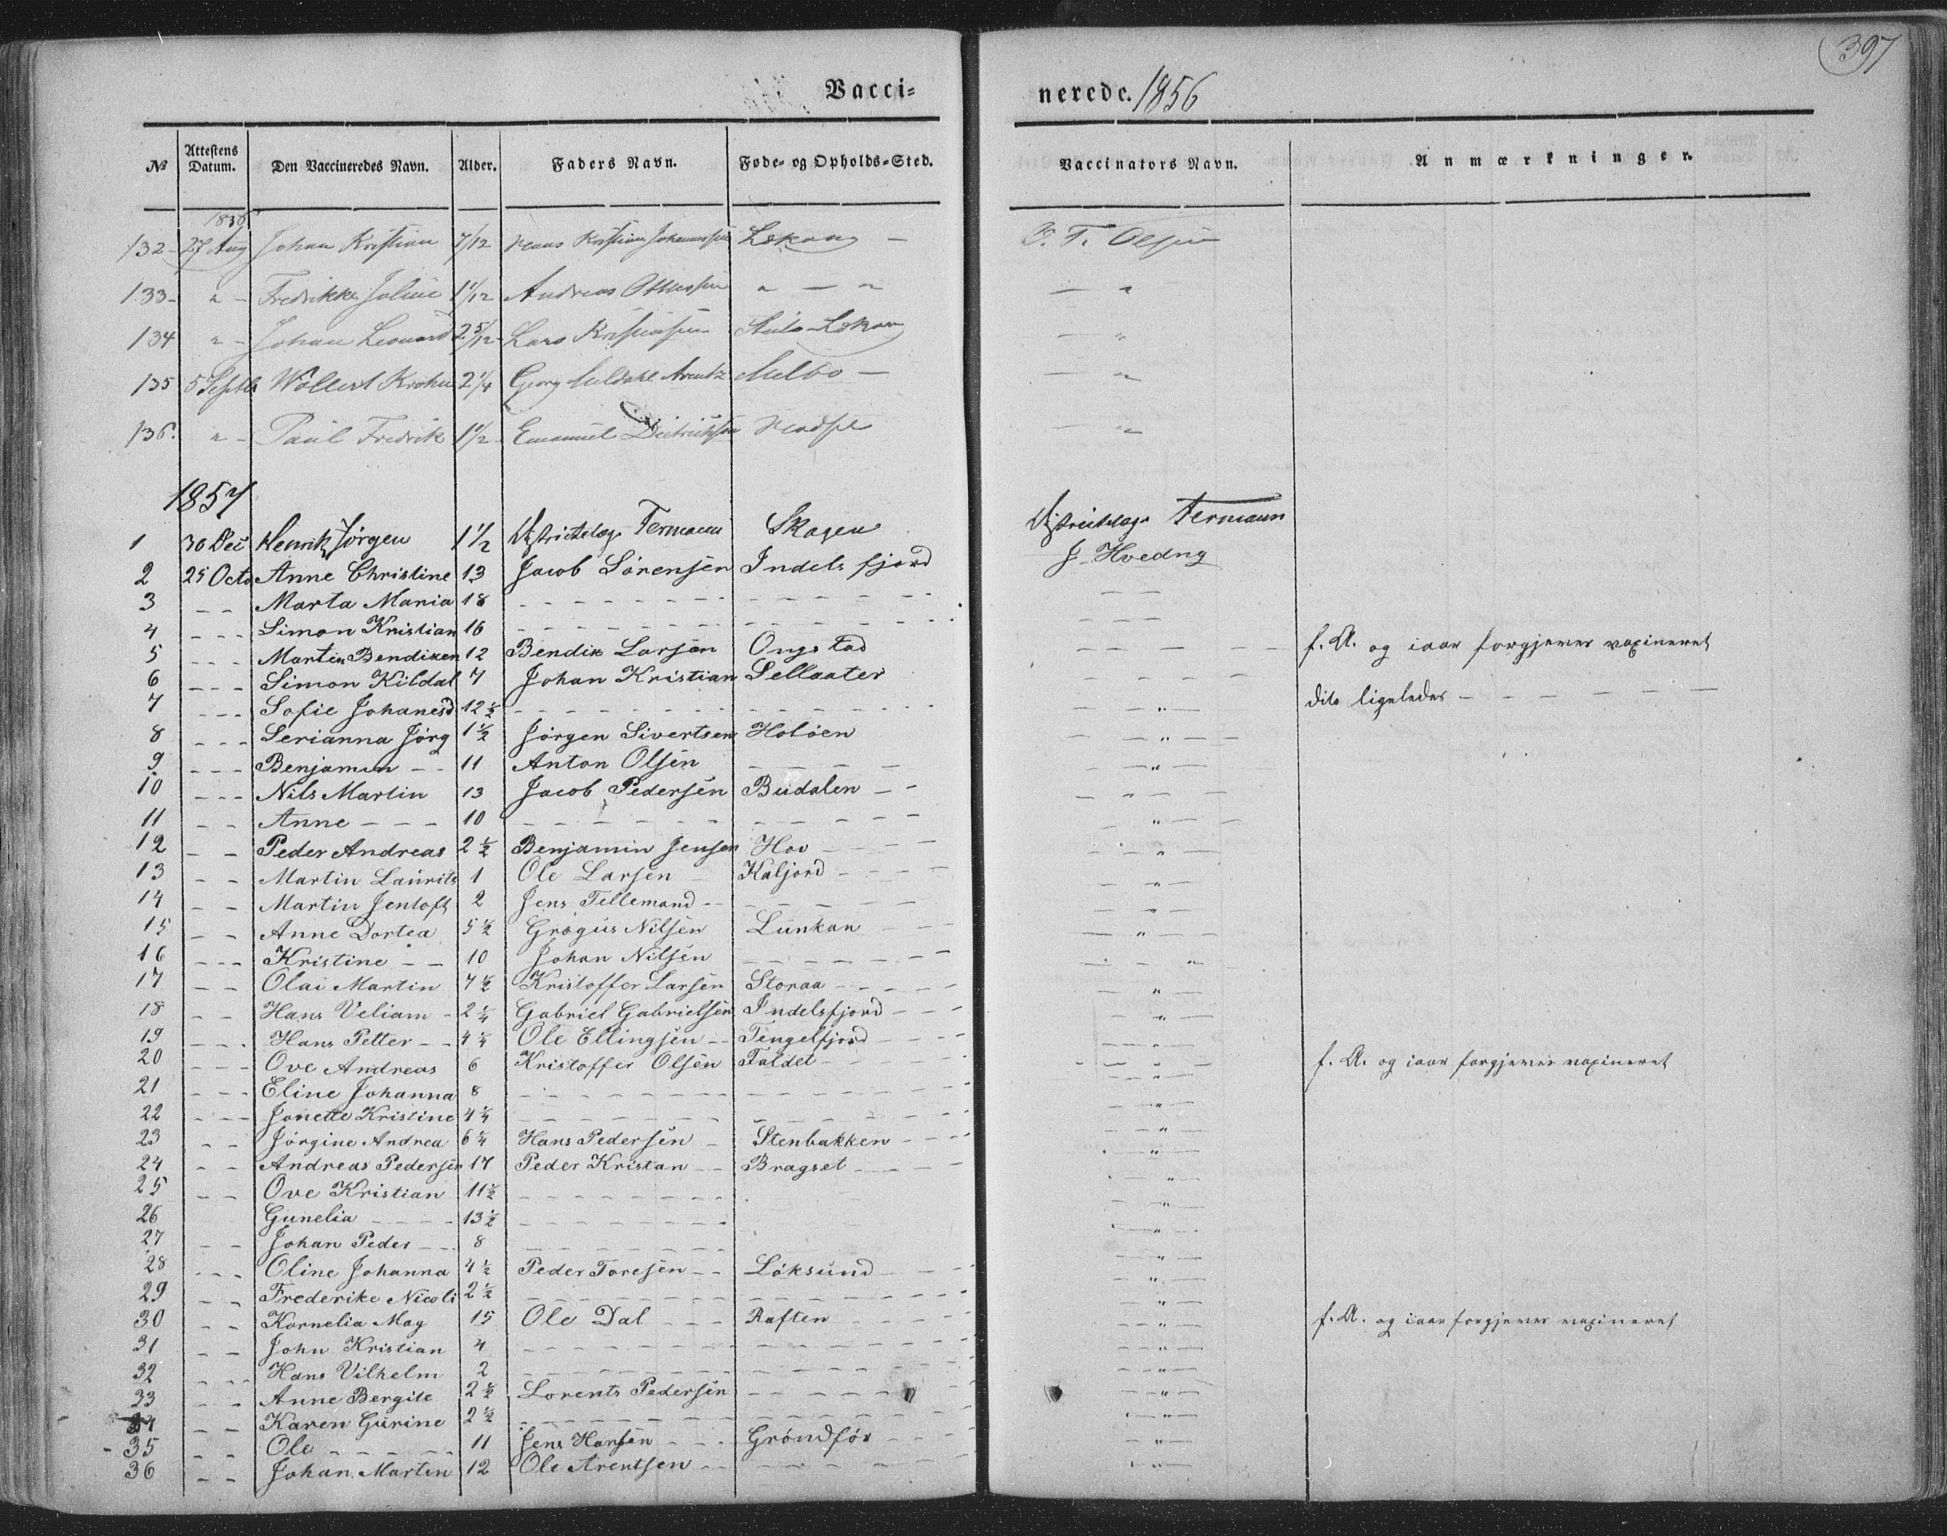 397
Vacci- nerede. 1856
№ Attestens Datum. Den Vaccineredes Navn. Alder. Faders Navn. Føde- og Opholds-Sted. Vaccinators Navn. Anmærkninger.
1856
132 27 Aug Johan Kristian 7/12 Hans Kristian Johannssen Lekang — O. T. Olsen
133 " - Fredrikke Joline 1 1/12 Andreas Ottessen " — " — "
134 " - Johan Leonard 2 5/12 Lars Kristensen Lekan — "
135 5 Septb Wollert Krohn 2 1/4 Georg Meldahl Arentz Melbo — — "
136. " - Paul Fredrik 1 1/2 Emanuel Deitrichsen Hadsel — "
1857
1 30 Dec Henrik Jørgen 1 1/2 Distriktslæge Fermann Skagen Distriktslæge Fermann
2 25 Octo Anne Christine 13 Jacob Sørensen Indels fjord J. Hveding
3 - - Marta Maria 18 - - - - - - - - - -
4 - - - Simon Kristian 16 - - - - - - - - -
5 - - - Martin Bendixen 12 Bendix Larsen Ongstad — — — — f. A. og iaar forgjeves vaxineret
6 - - - Simon Kildal 7 Johan Kristian Sellaater - - - -
7 - - - Sofie Johanesd 12 1/2 - - - - - - - — " — dito ligeledes - - - - - -
8 - - - Serianna Jørg 1 1/2 Jørgen Sivertsen Holøen — " —
9 - - - Benjamin - - 11 Anton Olsen - - - - — " —
10 - - - Nils Martin 13 Jacob Pedersen Budalen - - — " —
11 - - Anne - - - 10 - - - - - - - - — " —
12 - - Peder Andreas 2 1/2 Benjamin Jensen Hov - - - — " —
13 - - Martin Laurits 1 Ole Larsen Kaljord - - - — " —
14 - - Martin Jentoft 2 Jens Tellemand - - - - - - — " —
15 - - Anne Dortea 5 1/2 Grøgus Nilsen Lunkan - - - — " —
16 - - - Kristine - - 10 Johan Nilsen - - - - - — " —
17 - - Olai Martin 7 1/2 Kristoffer Larsen Storaa - - - - — " —
18 - - Hans Veliam - 2 1/4 Gabriel Gabrielsen Indelsfjord - - - — " —
19 - - - Hans Petter - - 4 1/4 Ole Ellingsen - - Tengelfjord - - — " —
20 - - - Ove Andreas 6 Kristoffer Olsen Faldet - - - — " — f. A. og iaar forgjeves vaxineret
21 - - - Eline Johanna 8 - - - - - - - - — " —
22 - - - Jonette Kristine 4 1/4 - - - - - - - — " —
23 - - Jørgine Andrea 6 1/4 Hans Pedersen - Stenbakken - - - — " —
24 - - Andreas Pedersen 17 Peder Kristan - - Bragset - - - - — " —
25 - - Ove Kristian 11 1/2 - - - - - - — " —
26 Gunelia - - - - 13 1/2 - - - - - - — " —
27 - - Johan Peder - - 8 - - - - - - — " —
28 - - - Oline Johanna 4 1/2 Peder Toresen - - Løksund - - - — " —
29 - - Frederike Nicoli 2 1/2 - - - - - - - - — " —
30 - - Kornelia Mag 15 Ole Dal - - - Raften - - - — " — f. A. og iaar forgjeves vaxineret
31 - - John Kristian 4 - - - - - - - - — " —
32 - - - Hans Vilhelm 2 - - - - - - - - — " —
33 - - Anne Bergite 2 1/2 Lorents Pedersen - - - - - — " —
34 - - Karen Gurine 2 1/2 - - - - - - - - — " —
35 - - Ole - - - - - 11 Jens Hansen - - - Grøndfør - - - — " —
36 - - Johan Martin 12 Ole Arentsen - - - - - - - — " —